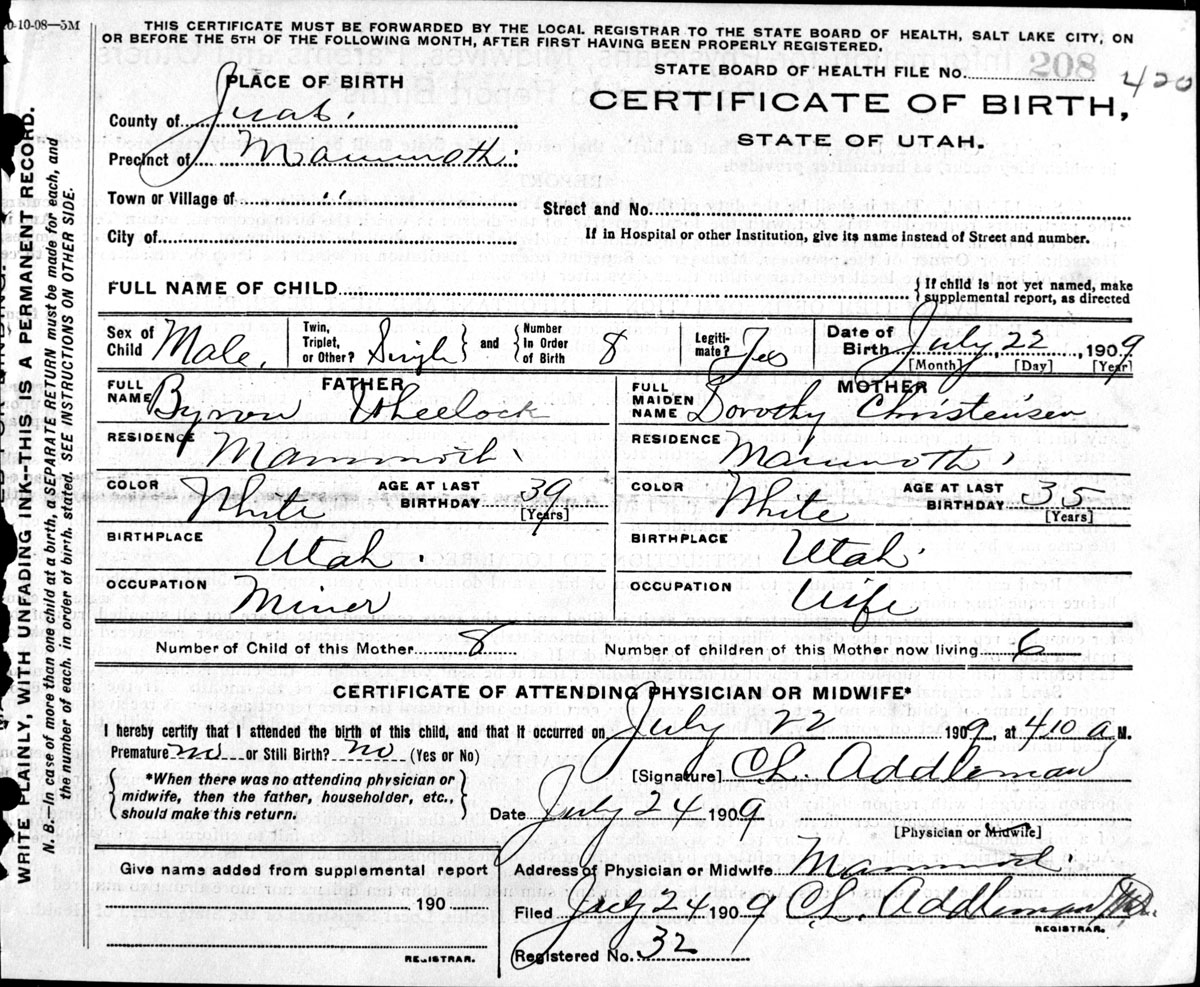 10-10-08—5M
THIS CERTIFICATE MUST BE FORWARDED BY THE LOCAL REGISTRAR TO THE STATE BOARD OF HEALTH, SALT LAKE CITY, ON
OR BEFORE THE 5TH OF THE FOLLOWING MONTH, AFTER FIRST HAVING BEEN PROPERLY REGISTERED.
WRITE PLAINLY, WITH UNFADING INK--THIS IS A PERMANENT RECORD.
N. B.—In case of more than one child at a birth, a SEPARATE RETURN must be made for each, and
the number of each, in order of birth, stated. SEE INSTRUCTIONS ON OTHER SIDE.
PLACE OF BIRTH
County of Juab.
Precinct of Mammoth
Town or Village of "
City of
STATE BOARD OF HEALTH FILE No. 208 420
CERTIFICATE OF BIRTH,
STATE OF UTAH.
Street and No.
If in Hospital or other Institution, give its name instead of Street and number.
FULL NAME OF CHILD
{ If child is not yet named, make
supplemental report, as directed
Sex of Child Male. Twin, Triplet, or Other? Single } and { Number In Order of Birth 8 Legiti- mate? Yes Date of Birth July 22, 1909
[Month] [Day] [Year]
FATHER
FULL NAME Byron Wheelock
RESIDENCE Mammoth
COLOR White AGE AT LAST BIRTHDAY 39 [Years]
BIRTHPLACE Utah.
OCCUPATION Miner
MOTHER
FULL MAIDEN NAME Dorothy Christensen
RESIDENCE Mammoth
COLOR White AGE AT LAST BIRTHDAY 35 [Years]
BIRTHPLACE Utah.
OCCUPATION Wife
Number of Child of this Mother 8 Number of children of this Mother now living 6
CERTIFICATE OF ATTENDING PHYSICIAN OR MIDWIFE*
I hereby certify that I attended the birth of this child, and that it occurred on July 22 1909, at 4 10 a M.
Premature no or Still Birth? no (Yes or No)
{ *When there was no attending physician or
midwife, then the father, householder, etc.,
should make this return. }
[Signature] Ch. Addleman
Date July 24 1909
[Physician or Midwife]
Give name added from supplemental report
190
REGISTRAR.
Address of Physician or Midwife Mammoth
Filed July 24 1909 Ch. Addleman
REGISTRAR.
Registered No. 32